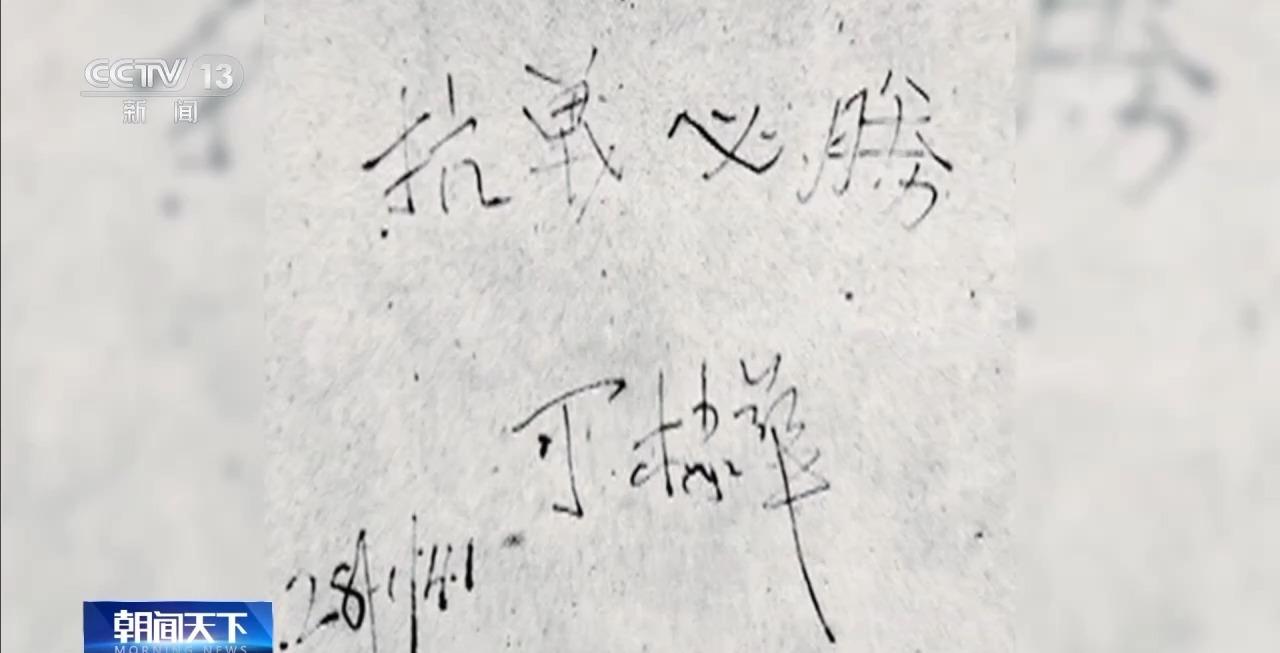 CCTV 13
新闻
抗戰必勝
丁
28/1/41
朝闻天下
MORNING NEWS